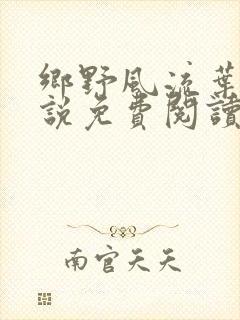 鄉野風流葉
說免費閱讀
南宮天天